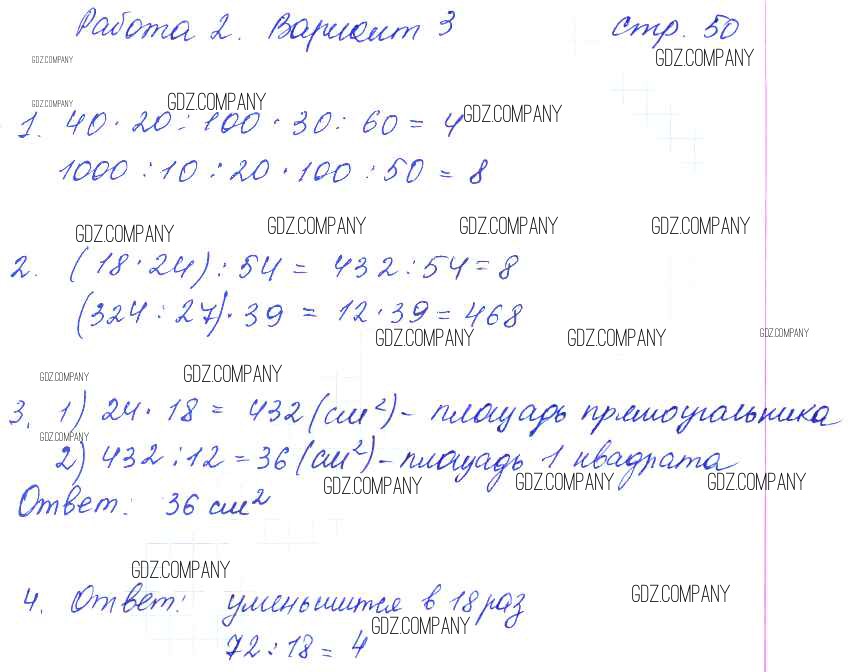 Работа 2. Вариант 3 стр. 50
GDZ.COMPANY GDZ.COMPANY
GDZ.COMPANY GDZ.COMPANY GDZ.COMPANY
1. 40 · 20 : 100 · 30 : 60 = 4
1000 : 10 : 20 · 100 : 50 = 8
GDZ.COMPANY GDZ.COMPANY GDZ.COMPANY GDZ.COMPANY
2. (18 · 24) : 54 = 432 : 54 = 8
(324 : 27) · 39 = 12 · 39 = 468
GDZ.COMPANY GDZ.COMPANY GDZ.COMPANY
GDZ.COMPANY GDZ.COMPANY
3. 1) 24 · 18 = 432 (см²) - площадь прямоугольника
GDZ.COMPANY
2) 432 : 12 = 36 (см²) - площадь 1 квадрата
GDZ.COMPANY GDZ.COMPANY GDZ.COMPANY
Ответ: 36 см²
GDZ.COMPANY GDZ.COMPANY
4. Ответ: уменьшится в 18 раз
GDZ.COMPANY
72 : 18 = 4